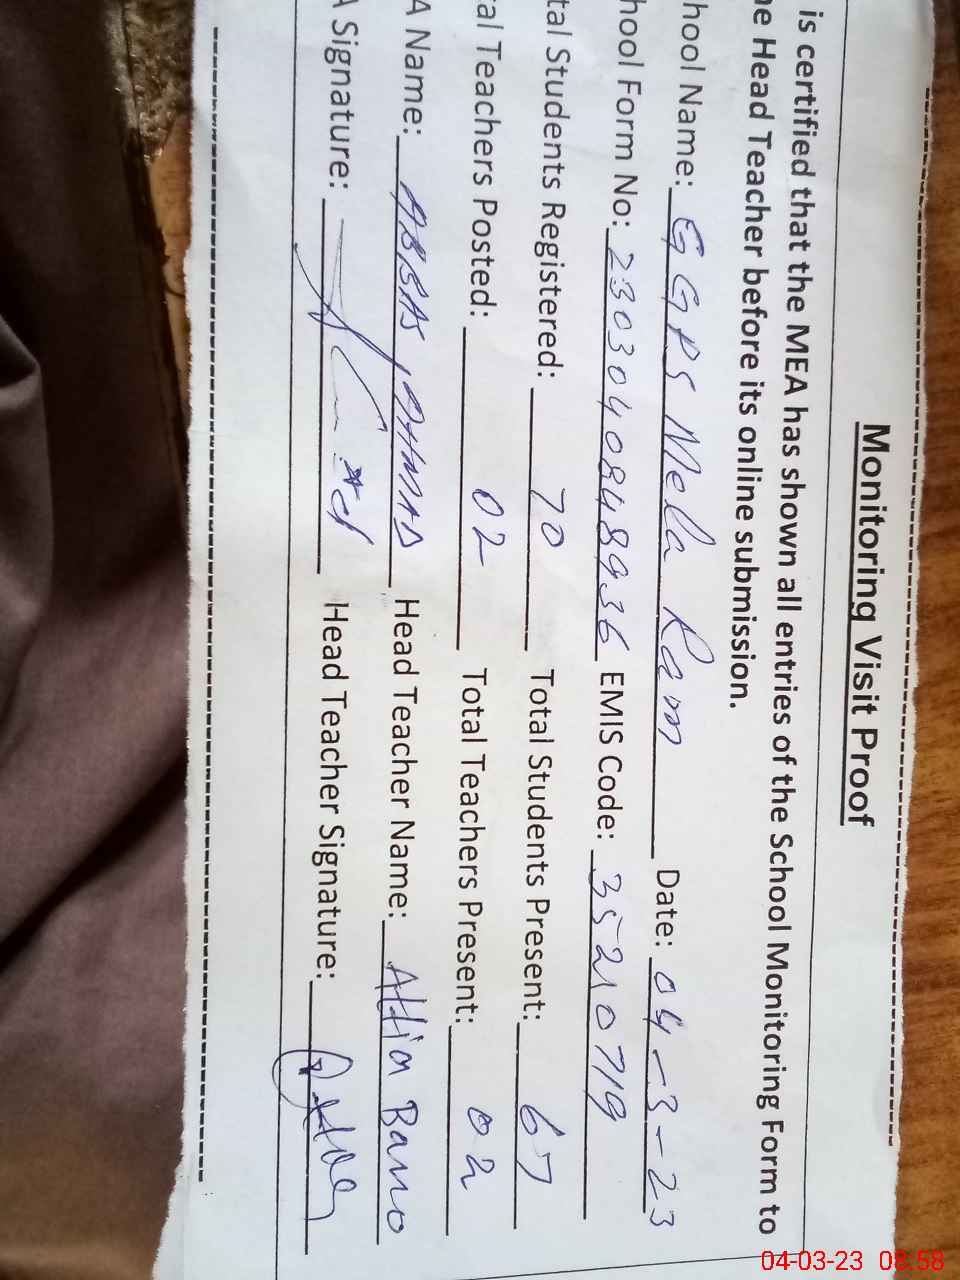 Monitoring Visit Proof
is certified that the MEA has shown all entries of the School Monitoring Form to
he Head Teacher before its online submission.
hool Name: GGPS Mela Ram Date: 04-3-23
hool Form No: 23030408448936 EMIS Code: 35210719
tal Students Registered: 70 Total Students Present: 67
al Teachers Posted: 02 Total Teachers Present: 02
A Name: ABBAS AHMAD Head Teacher Name: Attia Bano
A Signature: Head Teacher Signature:
04-03-23 08:58